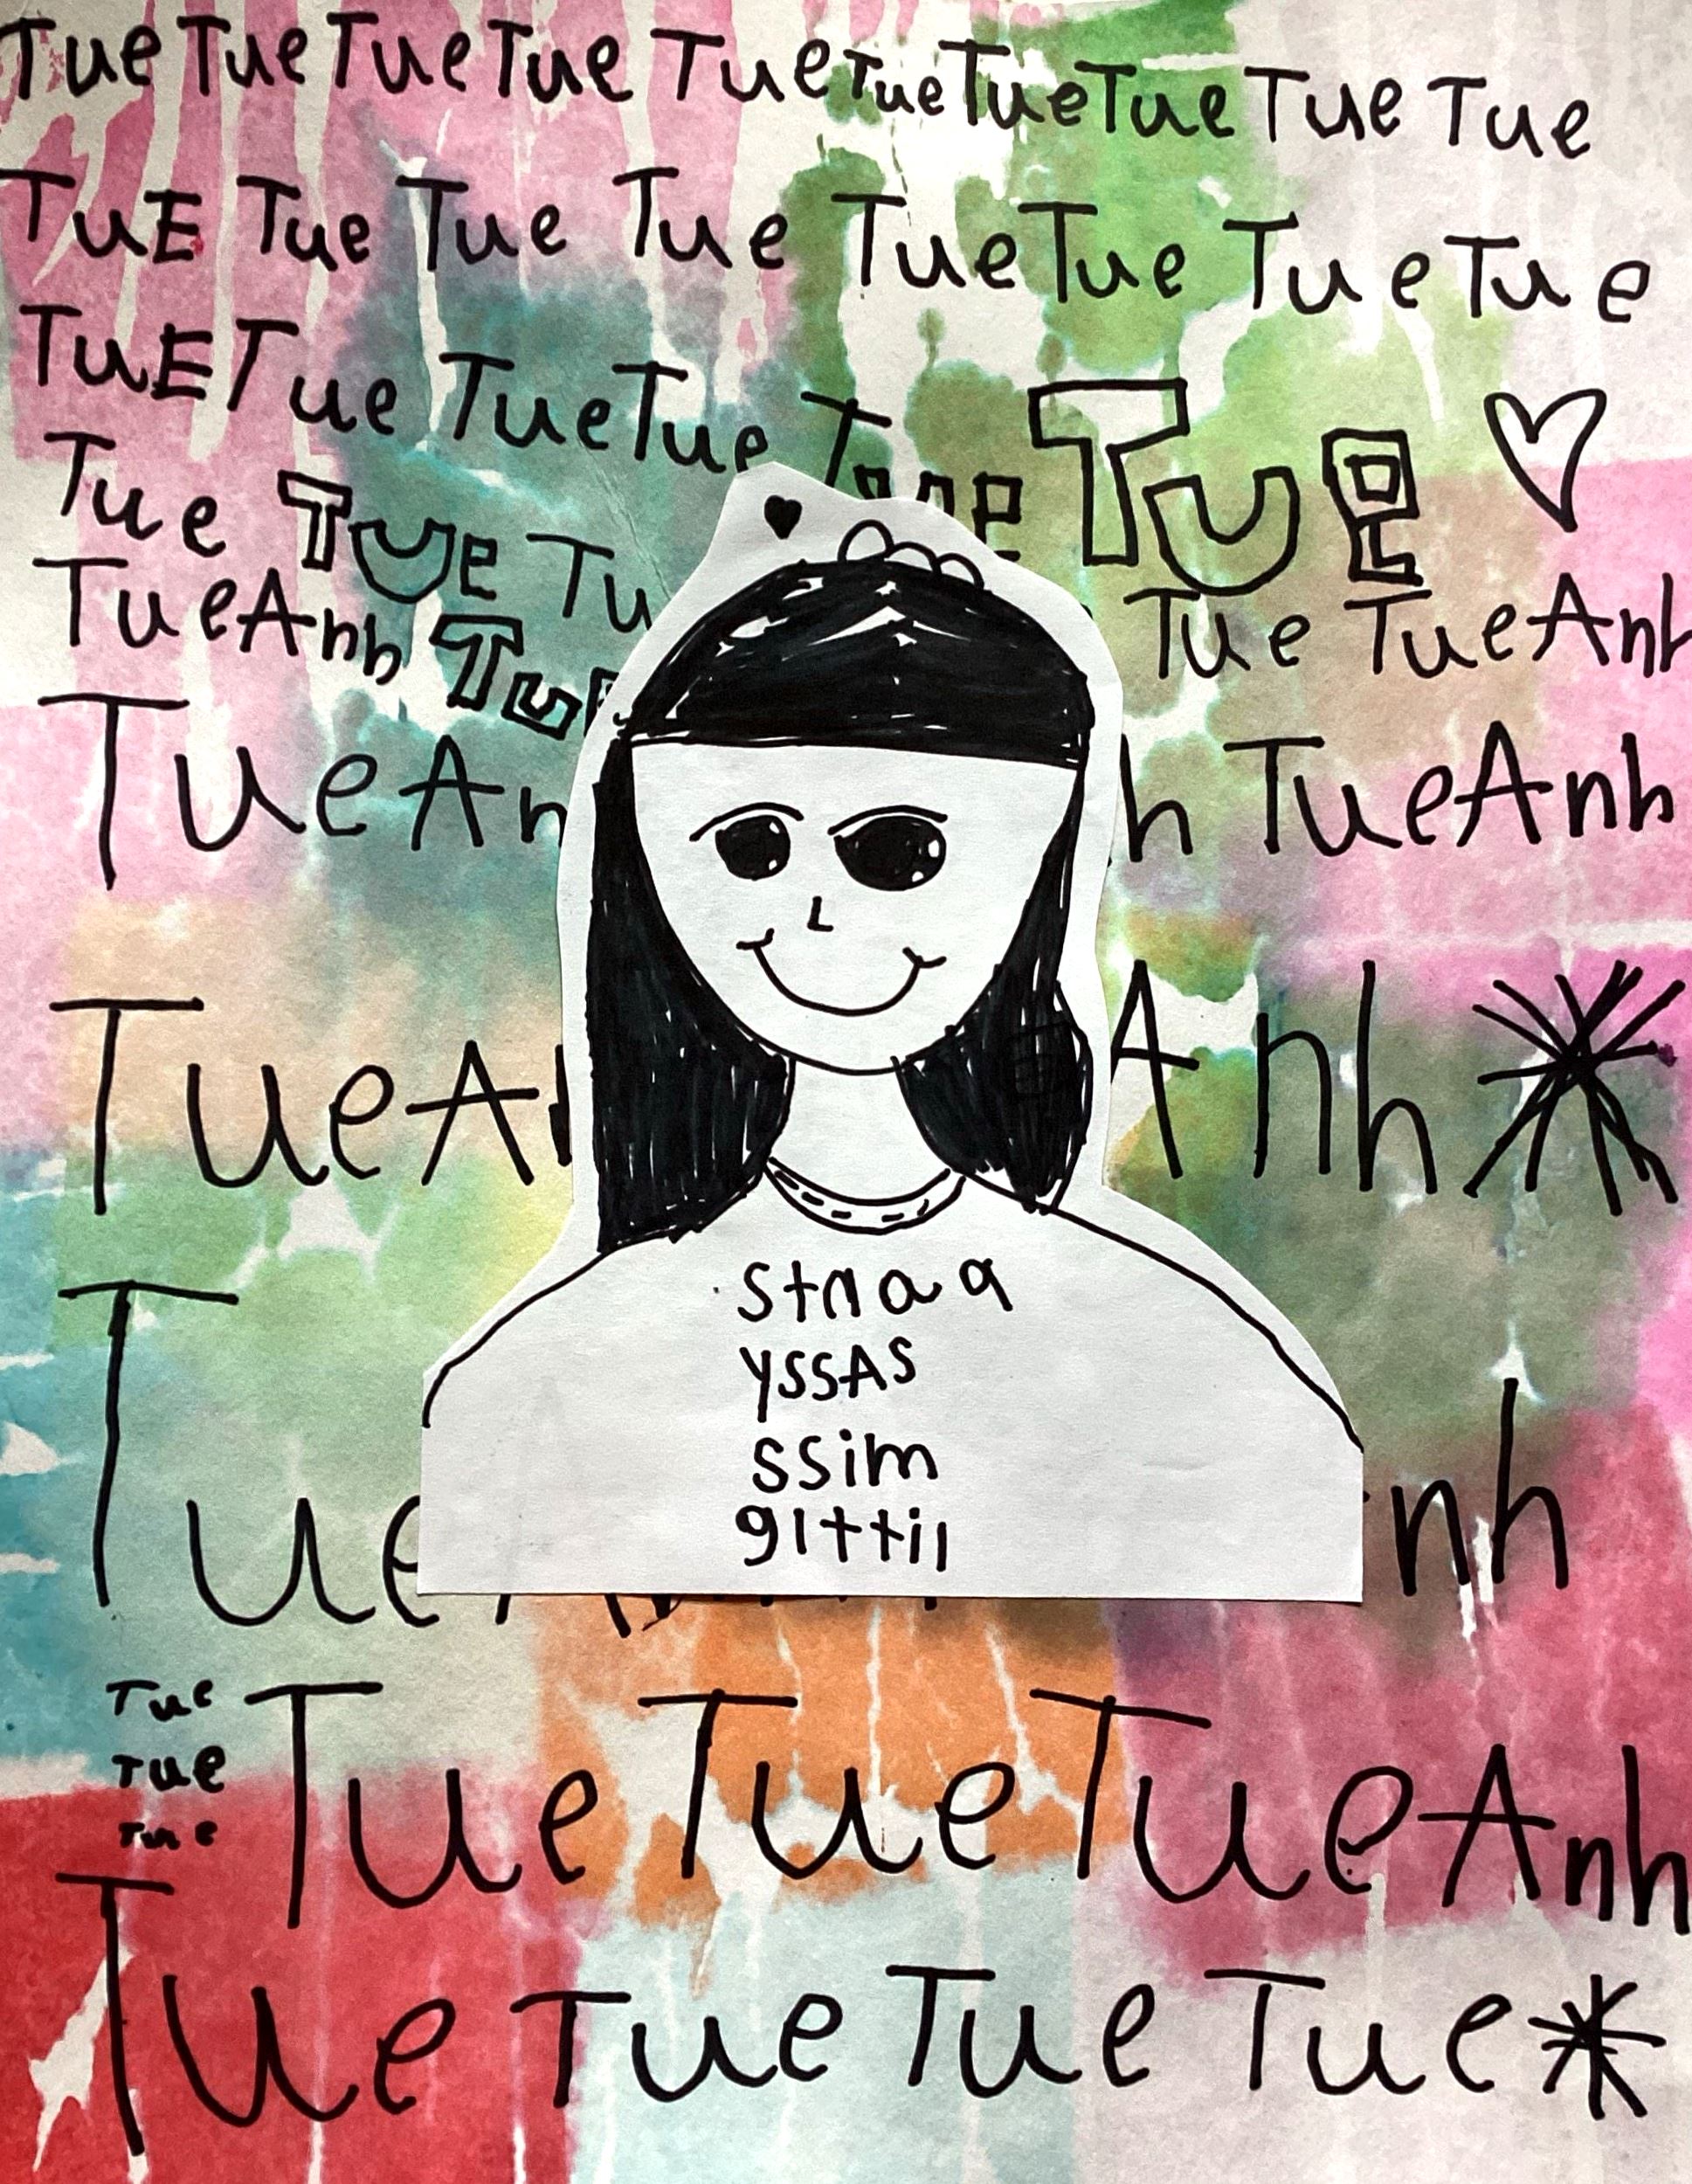 Tue Tue Tue Tue Tue Tue Tue Tue Tue Tue
TuE Tue Tue Tue Tue Tue Tue Tue
TuE Tue Tue Tue Tue ♡
Tue Tue Tu Tue TueAnh
TueAnh Tu
TueAn h TueAnh
TueA Anh
stnaq
yssAs
ssim
glttil
Tue nh
Tue
Tue Tue Tue TueAnh
Tue
Tue Tue Tue Tue